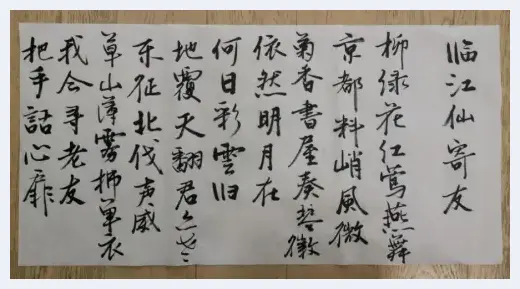 临江仙寄友
柳绿花红莺燕舞
京都料峭風微
菊香書屋奏琴徽
依然明月在
何日彩雲归
地覆天翻君亦老
东征北伐声威
草山薄雾拂单衣
我会寻老友
把手話心扉